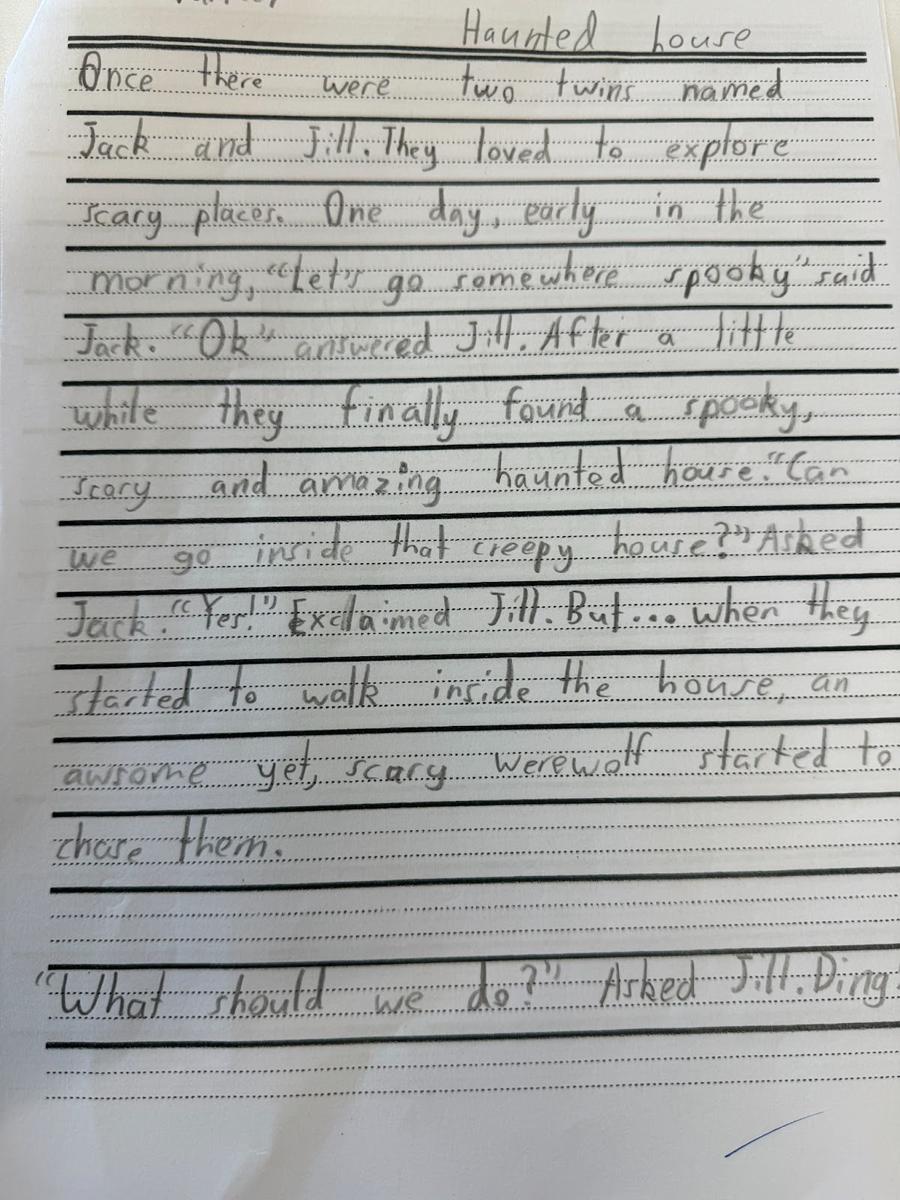 Haunted house
Once there were two twins named
Jack and Jill. They loved to explore
scary places. One day, early in the
morning, "Let's go somewhere spooky" said
Jack. "Ok" answered Jill. After a little
while they finally found a spooky,
scary and amazing haunted house. "Can
we go inside that creepy house?" Asked
Jack. "Yes!" Exclaimed Jill. But... when they
started to walk inside the house, an
awsome yet, scary werewolf started to
chase them.
"What should we do?" Asked Jill. Ding